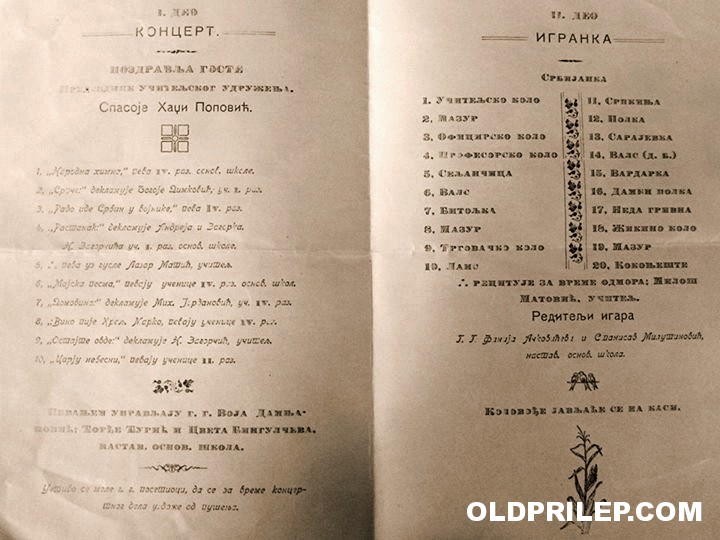 I. ДЕО
КОНЦЕРТ.
ПОЗДРАВЉА ГОСТЕ
ПРЕДСЕДНИК УЧИТЕЉСКОГ УДРУЖЕЊА.
Спасоје Хаџи Поповић.
1, „Народна химна", пева IV. раз. основ. школе.
2, „Сраче:" декламује Богоје Димковић, уч. I. раз.
3, „Радо иде Србин у војнике," пева IV. раз.
4, „Растанак:" декламује Андреја и Загорка
Н. Загорчића уч. I. раз. основ. школе.
5, ∴ пева уз гусле Лазар Матић, учитељ.
6, „Мајска песма," певају ученице IV. раз. основ. школ.
7, „Домовина:" декламује Мих. Јордановић, уч. IV. раз.
8, „Вино пије Краљ. Марко, певају ученице IV. раз.
9, „Остајте овде:" декламује Н. Загорчић, учитељ.
10, „Царју небесни," певају ученице II. раз.
ПЕВАЊЕМ УПРАВЉАЈУ Г. Г. ВОЈА ДАМЊА-
НОВИЋ; ЂОРЂЕ ЂУРИЋ И ЦВЕТА БИНГУЛЧЕВА,
НАСТАВ. ОСНОВ. ШКОЛА.
Учтиво се моле г. г. посетиоци, да се за време концерт-
ног дела уздрже од пушења.
II. ДЕО
ИГРАНКА
СРБИЈАНКА
1. УЧИТЕЉСКО КОЛО
2. МАЗУР
3. ОФИЦИРСКО КОЛО
4. ПРОФЕСОРСКО КОЛО
5. СЕЉАНЧИЦА
6. ВАЛС
7. БИТОЉКА
8. МАЗУР
9. ТРГОВАЧКО КОЛО
10. ЛАНС
11. СРПКИЊА
12. ПОЛКА
13. САРАЈЕВКА
14. ВАЛС (Д. Б.)
15. ВАРДАРКА
16. ДАМКИ ПОЛКА
17. НЕДА ГРИВНА
18. ЖИКИНО КОЛО
19. МАЗУР
20. КОКОЊЕШТЕ
∴ РЕЦИТУЈЕ ЗА ВРЕМЕ ОДМОРА; МИЛОШ
МАТОВИЋ, УЧИТЕЉ.
Редитељи игара
Г. Г. и Станислав Милутиновић,
настав. основ. школа.
КОЛОВОЂЕ ЈАВЉАЋЕ СЕ НА КАСИ.
OLDPRILEP.COM